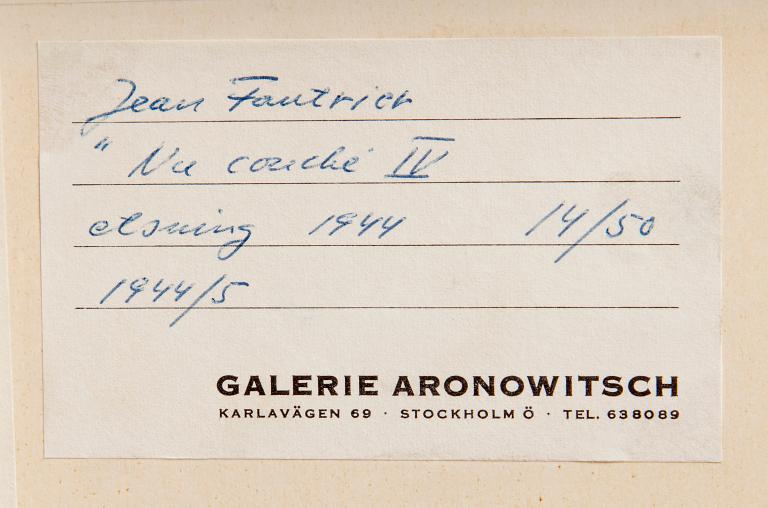 Jean Fautrier
" Nu couché IV
etsning 1944 14/50
1944/5
GALERIE ARONOWITSCH
KARLAVÄGEN 69 · STOCKHOLM Ö · TEL. 638089